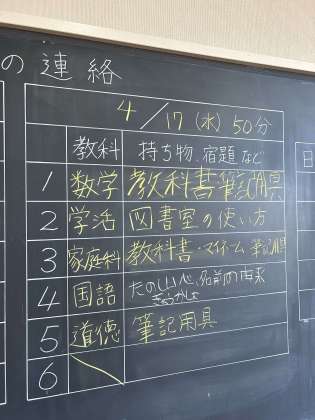 の連絡
4/17(水) 50分
教科 持ち物、宿題など
1 数学 教科書 筆記用具
2 学活 図書室の使い方
3 家庭科 教科書・マイネーム 筆記用具
4 国語 名前の由来
5 道徳 筆記用具
6
日